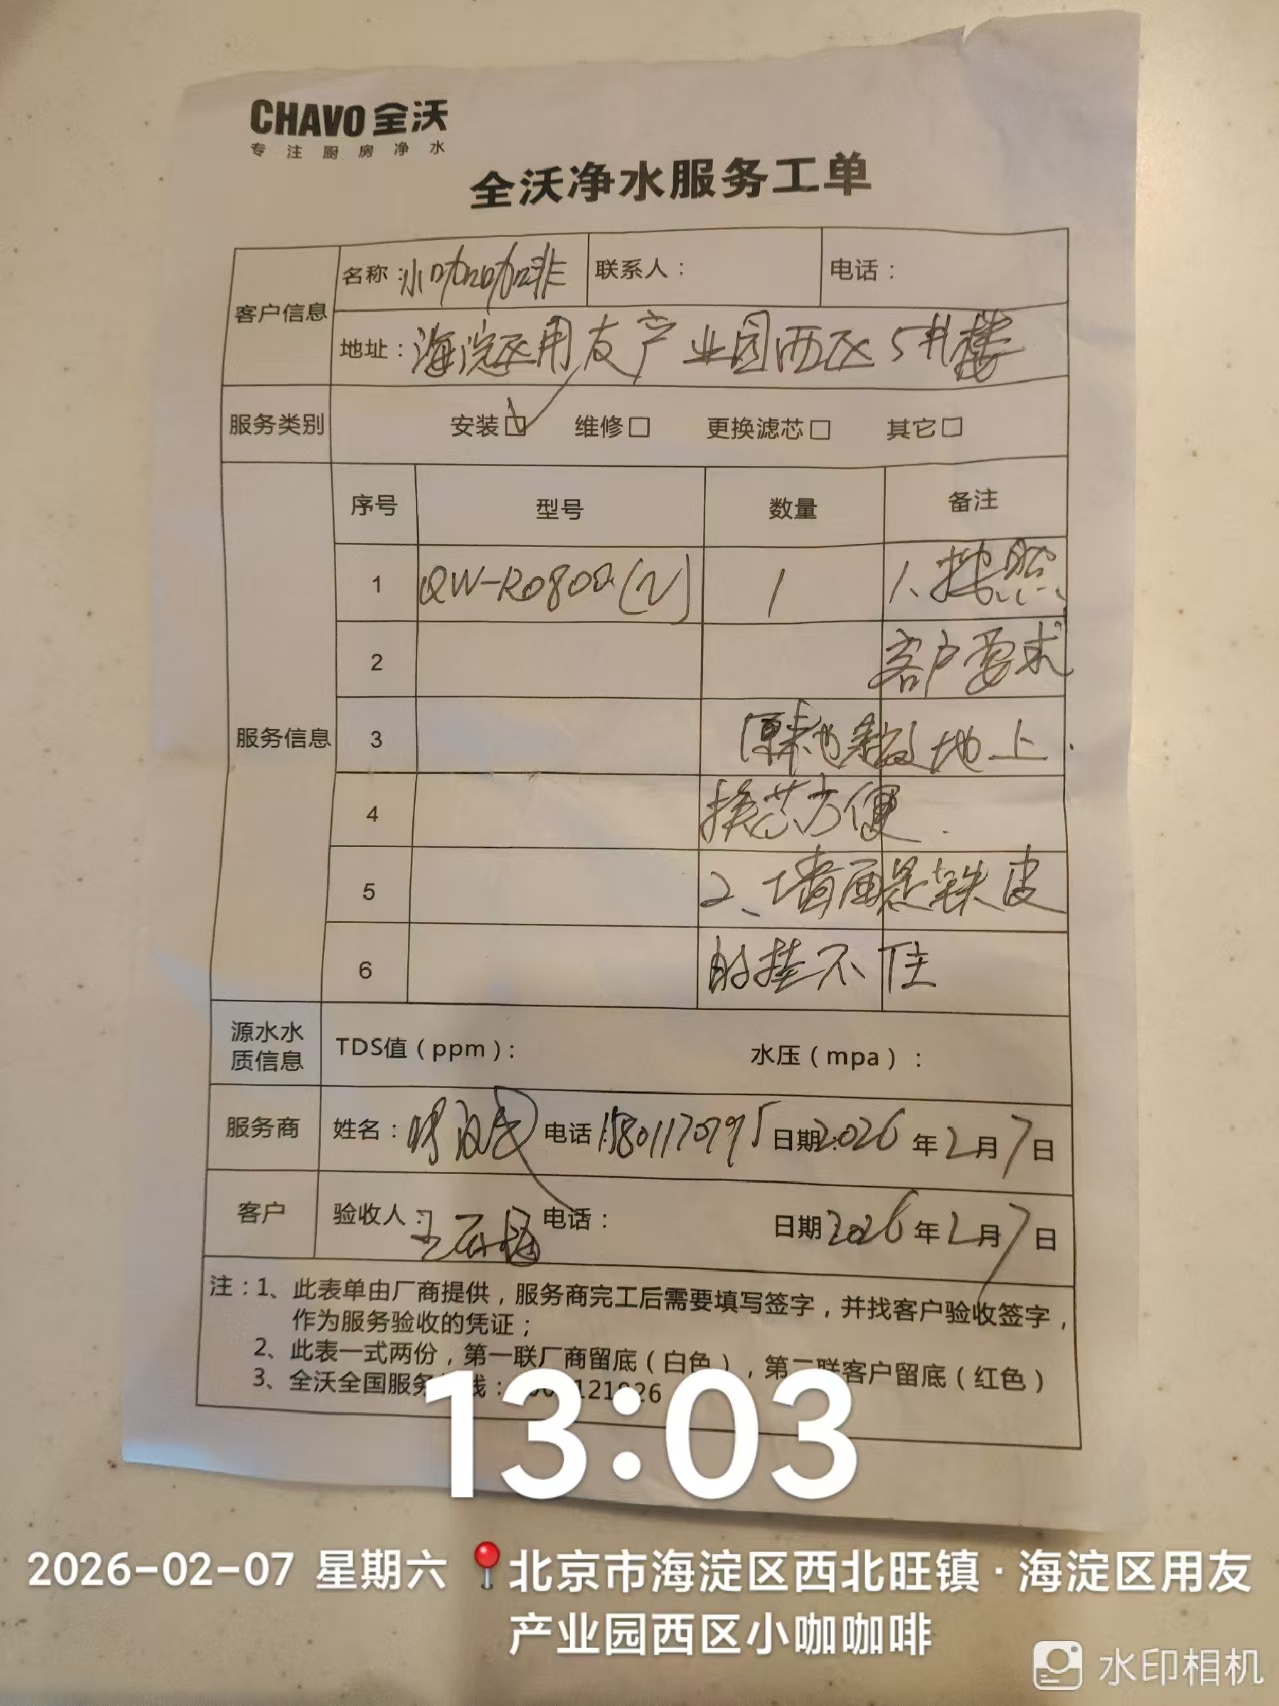 CHAVO 全沃
专注厨房净水
全沃净水服务工单
客户信息
名称：小咖咖啡 联系人： 电话：
地址：海淀区用友产业园西区5#楼
服务类别 安装☑ 维修□ 更换滤芯□ 其它□
服务信息
序号 型号 数量 备注
1 QW-RO800(N) 1 1、按照
2 客户要求
3 原来也是放地上.
4 换芯方便.
5 2、墙面是铁皮
6 的挂不住
源水水质信息 TDS值（ppm）： 水压（mpa）：
服务商 姓名： 电话 15801170795 日期：2026年2月7日
客户 验收人：王 电话： 日期 2026年2月7日
注：1、此表单由厂商提供，服务商完工后需要填写签字，并找客户验收签字，
作为服务验收的凭证；
2、此表一式两份，第一联厂商留底（白色），第二联客户留底（红色）
3、全沃全国服务 线：
13:03
2026-02-07 星期六 北京市海淀区西北旺镇·海淀区用友
产业园西区小咖咖啡
水印相机